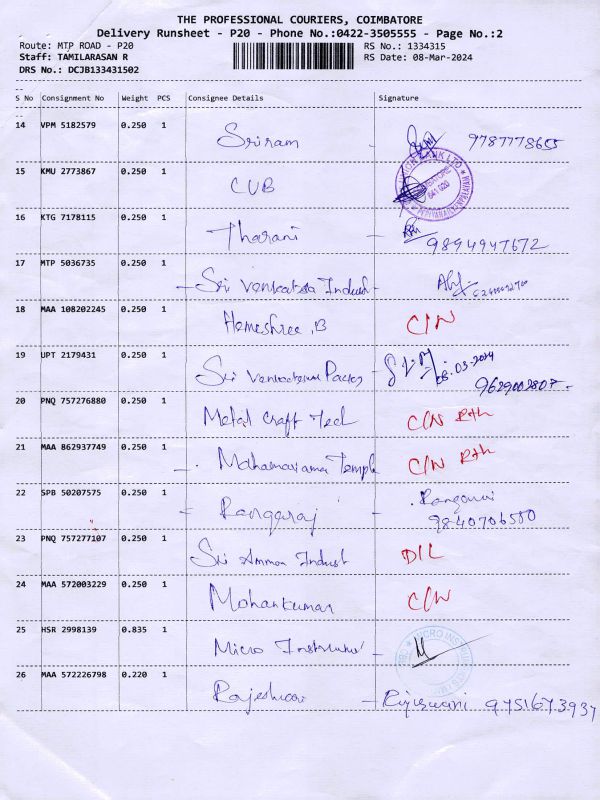 THE PROFESSIONAL COURIERS, COIMBATORE
Delivery Runsheet - P20 - Phone No.:0422-3505555 - Page No.:2
Route: MTP ROAD - P20
RS No.: 1334315
Staff: TAMILARASAN R
RS Date: 08-Mar-2024
DRS No.: DCJB133431502
S No Consignment No Weight PCS Consignee Details Signature
14 VPM 5182579 0.250 1 Sriram 9787778655
15 KMU 2773867 0.250 1 CUB
16 KTG 7178115 0.250 1 Tharani 9894947672
17 MTP 5036735 0.250 1 Sri Venkatesa Indush
18 MAA 108202245 0.250 1 Hemeshree .B C/N
19 UPT 2179431 0.250 1 Sri 08.03-2024
9629002807
20 PNQ 757276880 0.250 1 Metal Craft Tech C/N Rth
21 MAA 862937749 0.250 1 Mahamariamma Temple C/N Rth
22 SPB 50207575 0.250 1 Rangaraj
9840706550
23 PNQ 757277107 0.250 1 Sri Amman Indust D/L
24 MAA 572003229 0.250 1 Mohankumar C/N
25 HSR 2998139 0.835 1 Micro Instrument
26 MAA 572226798 0.220 1 Rajeshwari 9751673937